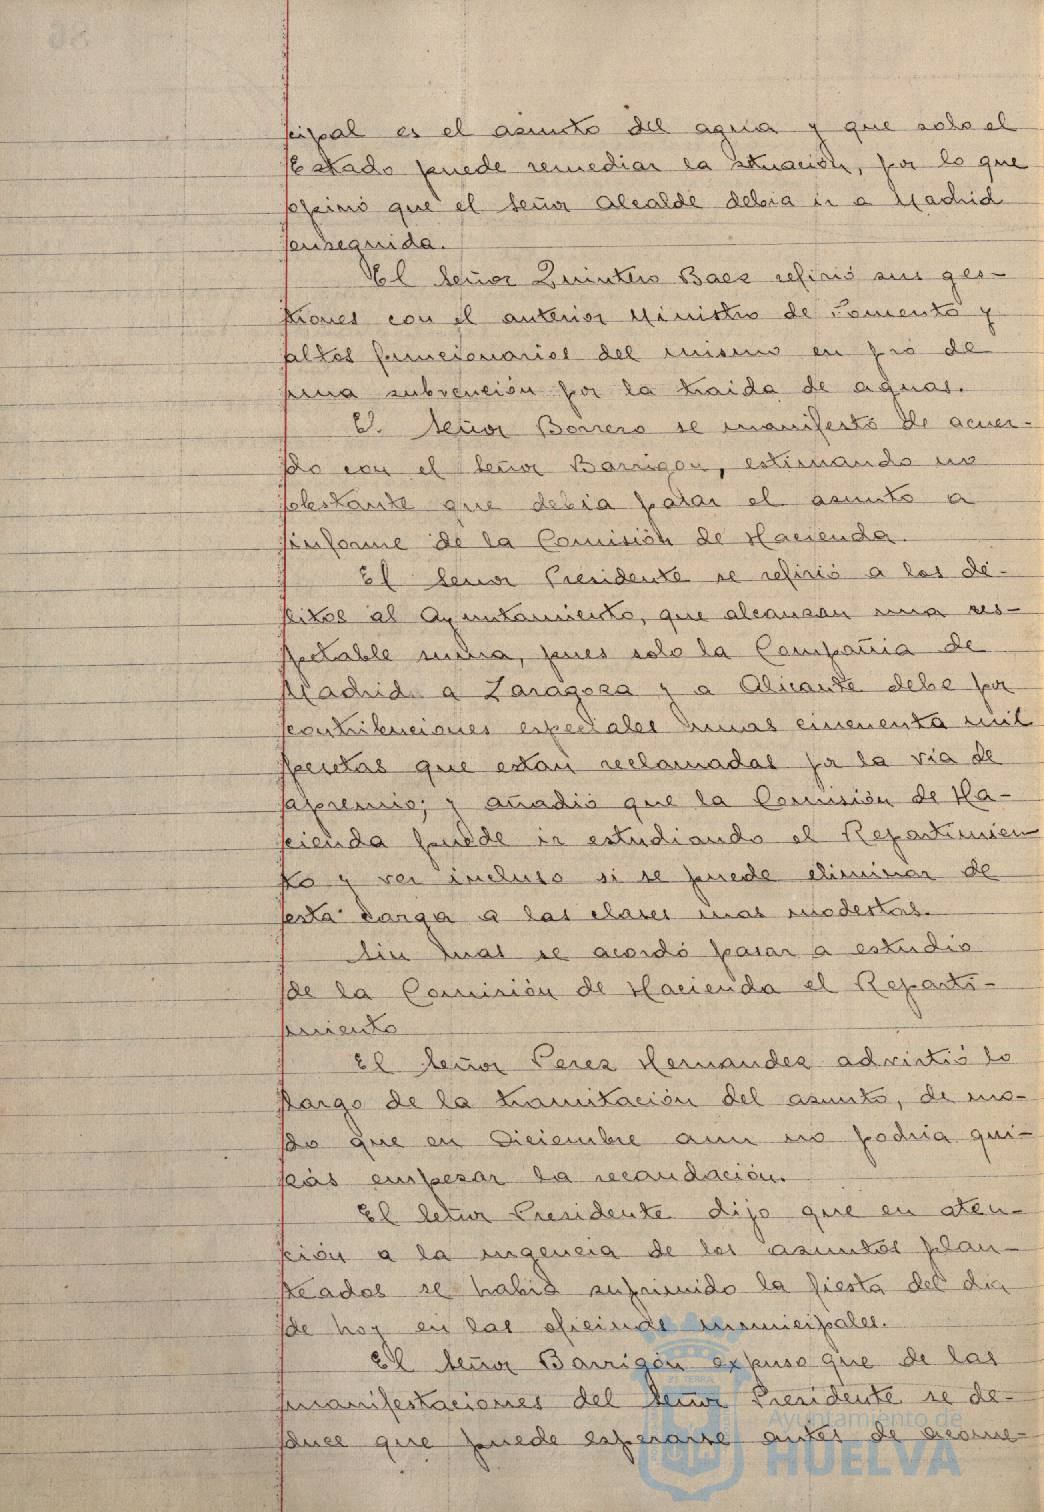 cipal es el asunto del agua y que solo el
Estado puede remediar la situación, por lo que
opinó que el Señor Alcalde debia ir a Madrid
enseguida.
El Señor Quintero Baez refirió sus ges-
tiones con el anterior Ministro de Fomento y
altos funcionarios del mismo en pró de
una subvención por la traida de aguas.
El Señor Borrero se manifestó de acuer-
do con el Señor Barrigon, estimando no
obstante que debia pasar el asunto a
informe de la Comisión de Hacienda.
El Señor Presidente se refirió a los dé-
bitos al Ayuntamiento, que alcanzan una res-
petable suma, pues solo la Compañia de
Madrid a Zaragoza y a Alicante debe por
contribuciones especiales unas cincuenta mil
pesetas que están reclamadas por la via de
apremio; y añadió que la Comisión de Ha-
cienda puede ir estudiando el Repartimien
to y ver incluso si se puede eliminar de
esta carga a las clases mas modestas.
Sin mas se acordó pasar a estudio
de la Comisión de Hacienda el Reparti-
miento
El Señor Perez Hernandez advirtió lo
largo de la tramitación del asunto, de mo-
do que en Diciembre aun no podria qui-
zás empezar la recaudación.
El Señor Presidente dijo que en aten-
ción a la urgencia de los asuntos plan-
teados se habia suprimido la fiesta del dia
de hoy en las oficinas municipales.
El Señor Barrigón expuso que de las
manifestaciones del Señor Presidente se de-
duce que puede esperarse antes de acome-
Ayuntamiento de
HUELVA